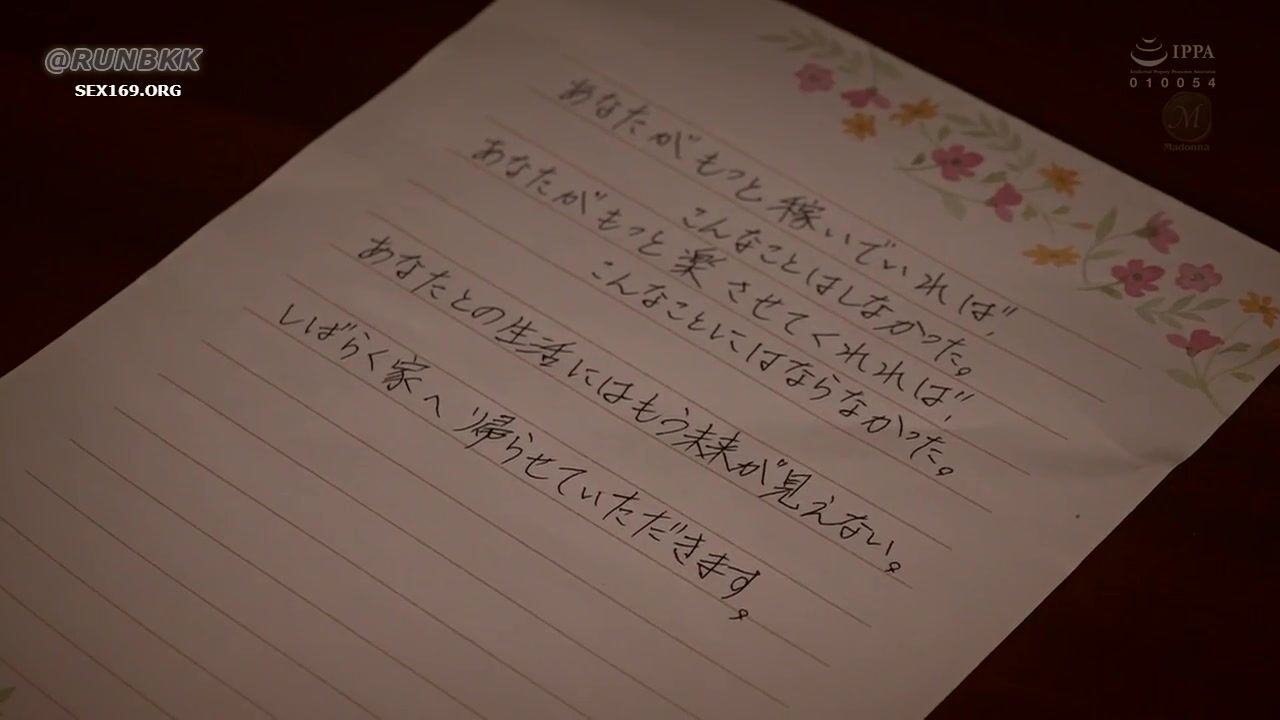 @RUNBKK
SEX169.ORG
IPPA
010054
M
Madonna
あなたがもっと稼いでいれば、
こんなことはしなかった。
あなたがもっと楽させてくれれば、
こんなことにはならなかった。
あなたとの生活にはもう未来が見えない。
しばらく家へ帰らせていただきます。